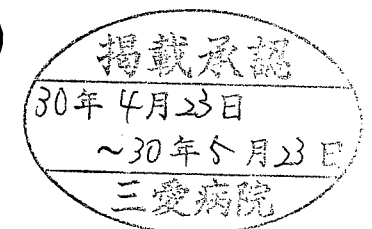 掲載承認
30年4月23日
～30年5月23日
三愛病院